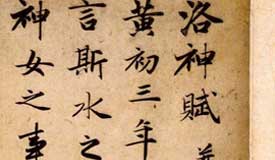 洛神賦
黄初三年
言斯水之
神女之事